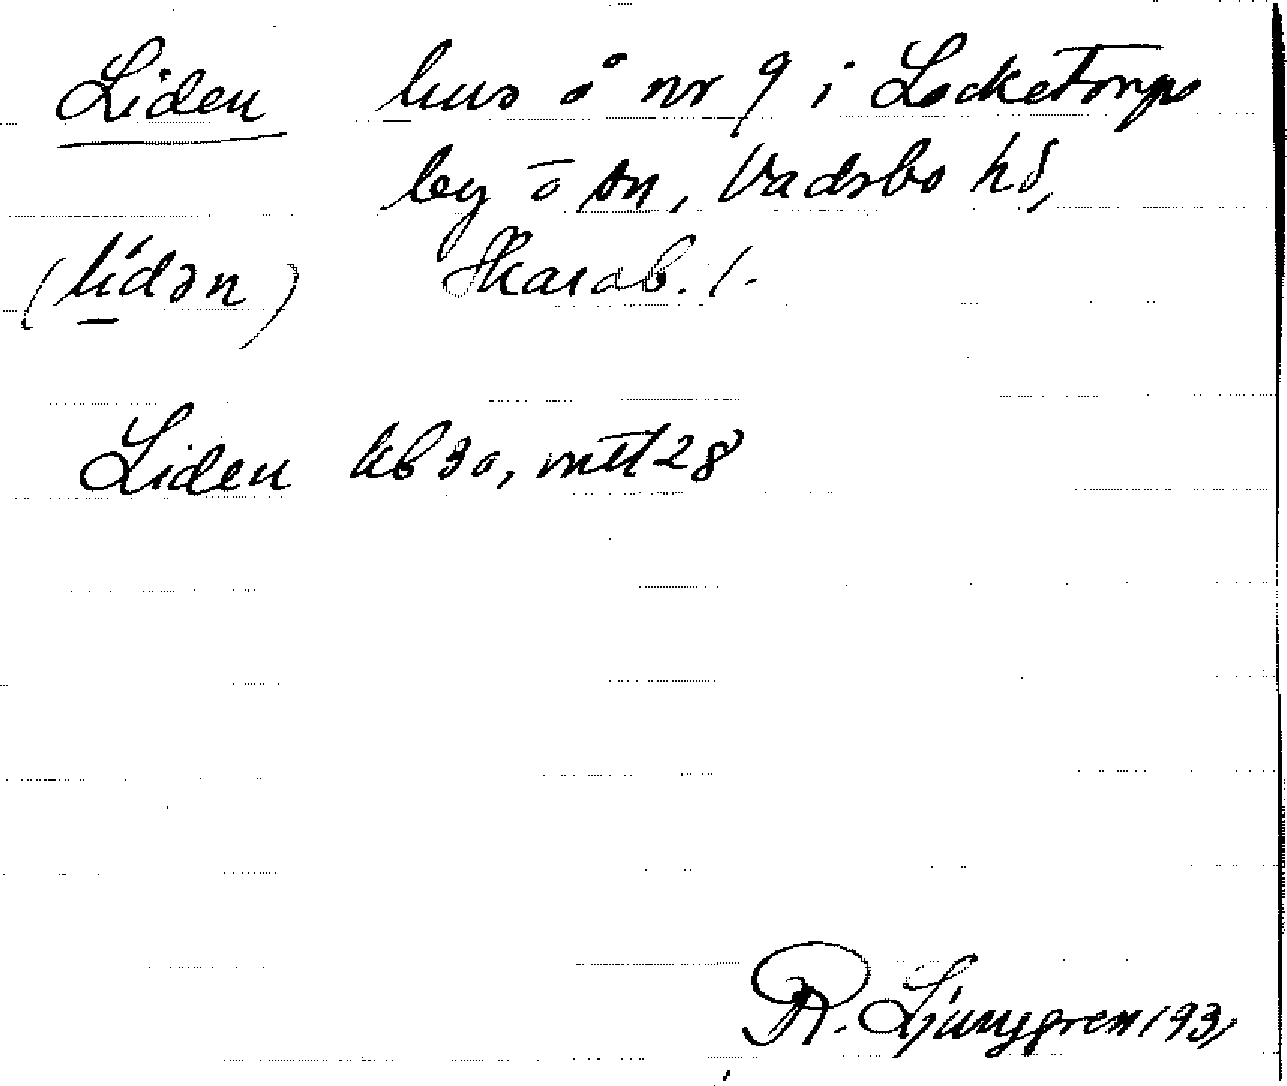 Liden hus å nr 9 i Locketorps
by o sn, Vadsbo hd,
(lídən) Skarab. l.
Liden kb 30, mtl 28
R. Ljunggren 193